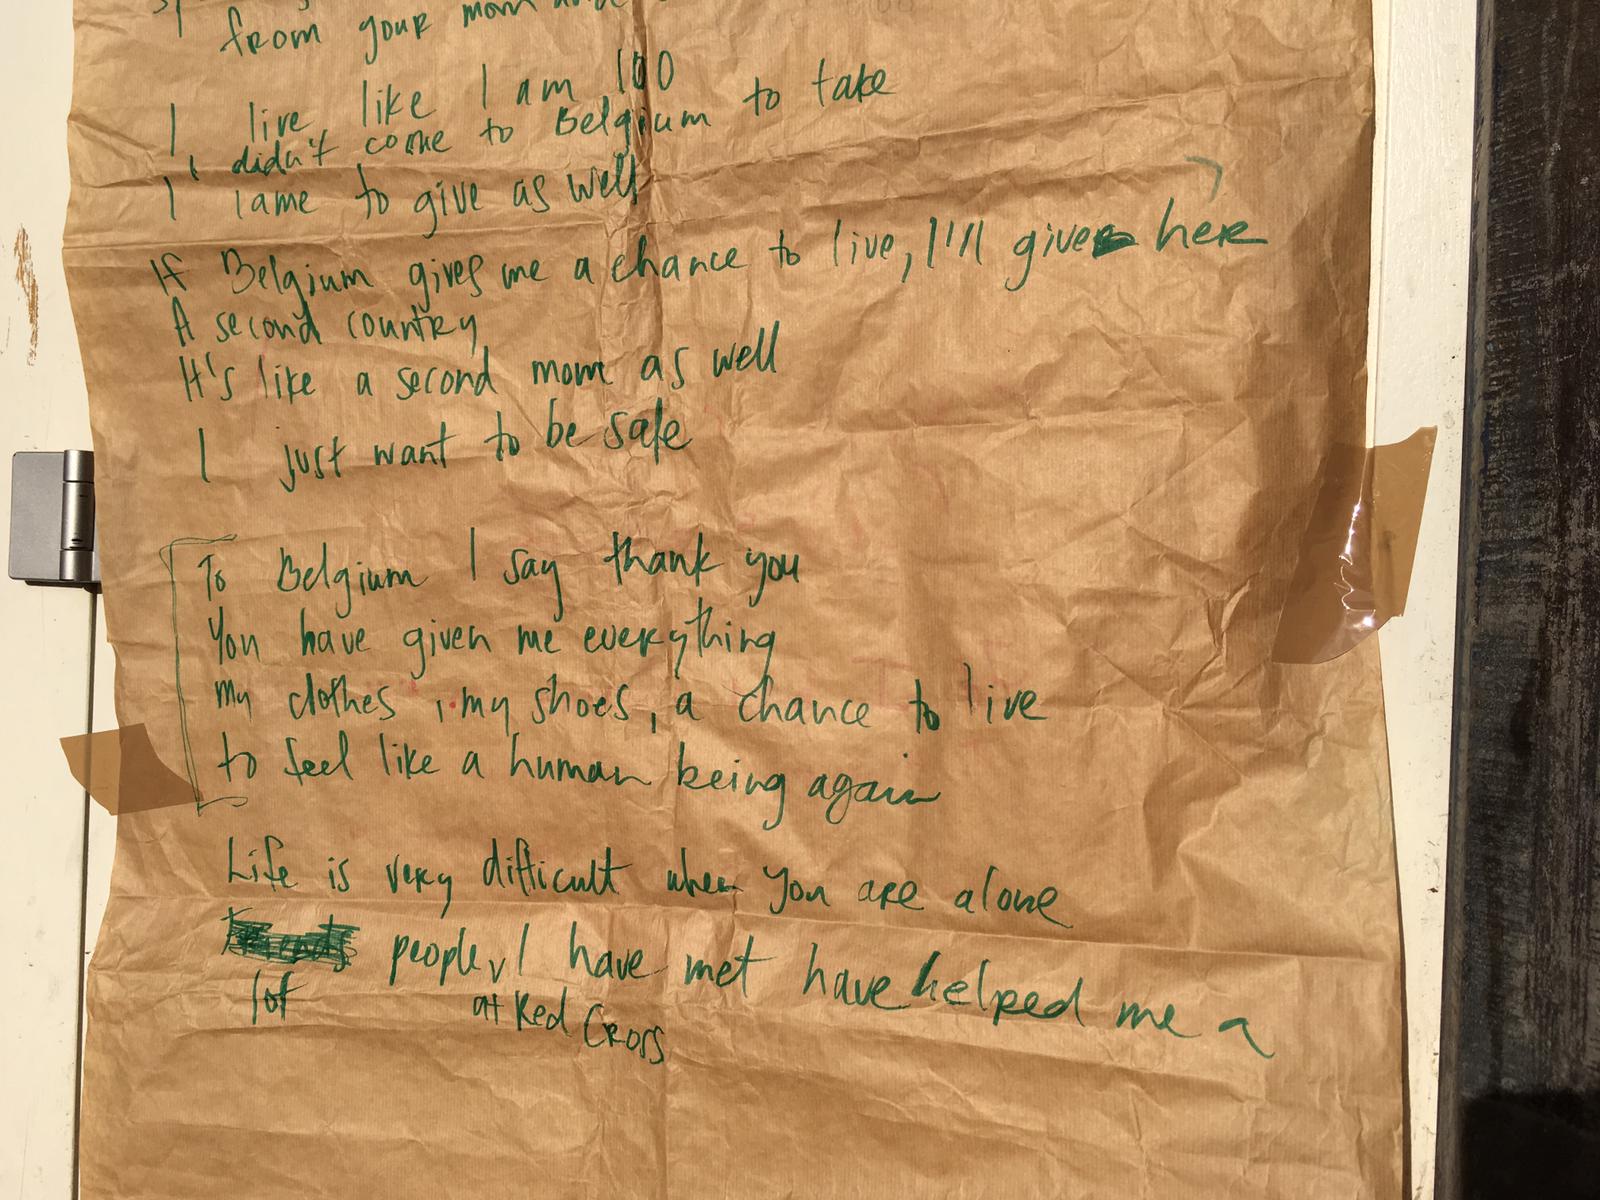 from your mom and
I live like I am 100
I didn't come to Belgium to take
I came to give as well
If Belgium gives me a chance to live, I'll give here
A second country
It's like a second mom as well
I just want to be safe
To Belgium I say thank you
You have given me everything
my clothes, my shoes, a chance to live
to feel like a human being again
Life is very difficult when you are alone
people, I have met have helped me a
lot
at Red Cross